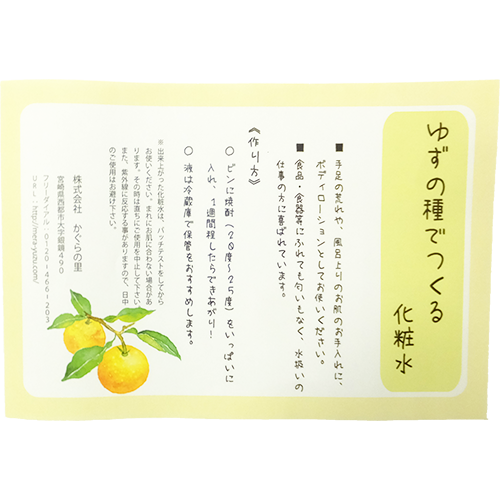 ゆずの種でつくる
化粧水
■手足の荒れや、風呂上りのお肌のお手入れに、
ボディローションとしてお使いください。
■食品・食器等にふれても匂いもなく、水扱いの
仕事の方に喜ばれています。
《作り方》
○ ビンに焼酎（20度～25度）をいっぱいに
入れ、1週間程したらできあがり！
○ 液は冷蔵庫で保管をおすすめします。
※出来上がった化粧水は、パッチテストをしてから
お使いください。まれにお肌に合わない場合があ
ります。その時は直ちにご使用を中止して下さい。
また、紫外線に反応する事がありますので、日中
のご使用はお避け下さい。
株式会社 かぐらの里
宮崎県西都市大字銀鏡490
フリーダイアル：0120-466-203
URL：http://mera-yuzu.com/